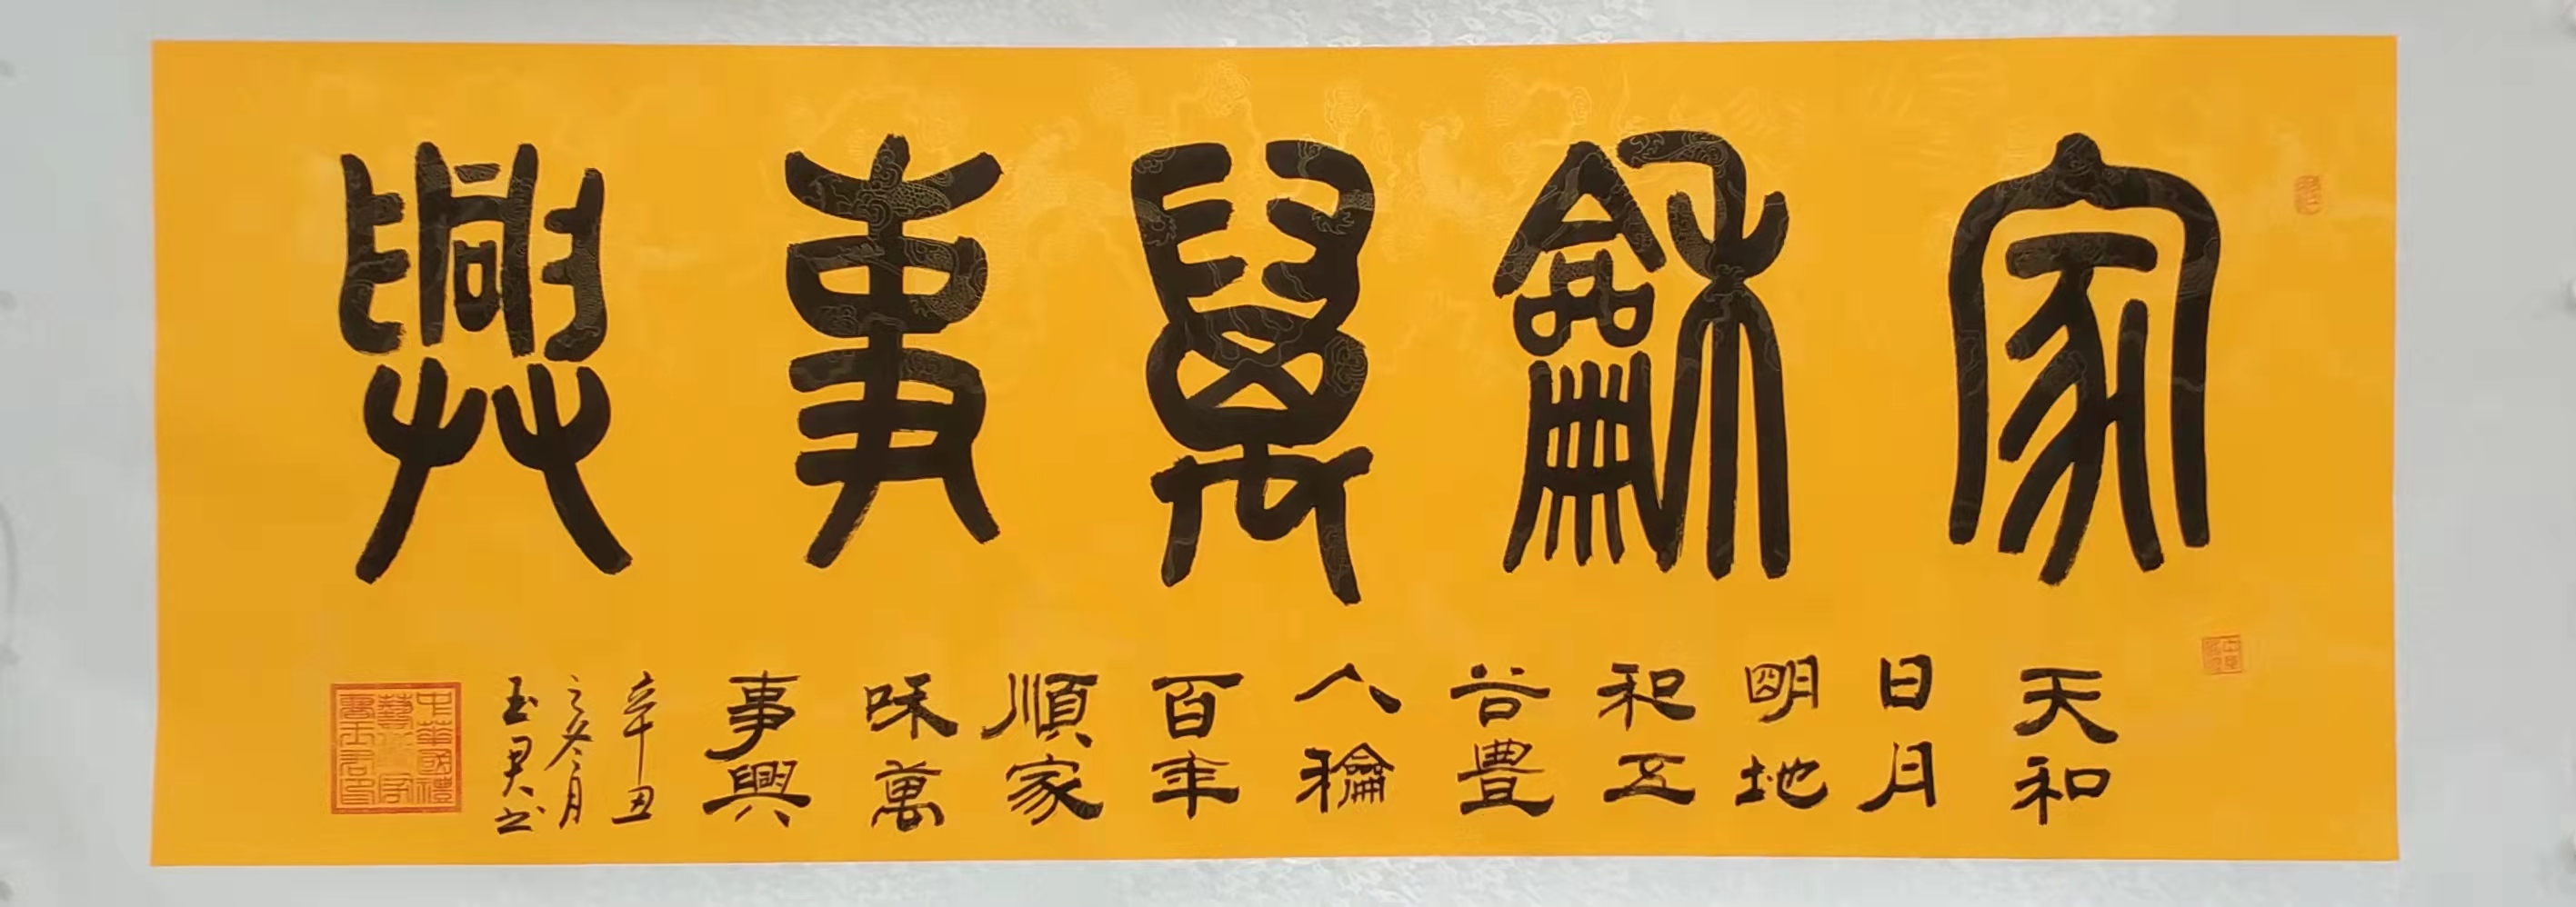 家龢萬事興
天和
日月
明地
和五
谷豊
人龢
百年
順家
咊萬
事興
辛丑
之冬月
玉君书
中華國禮
藝術家